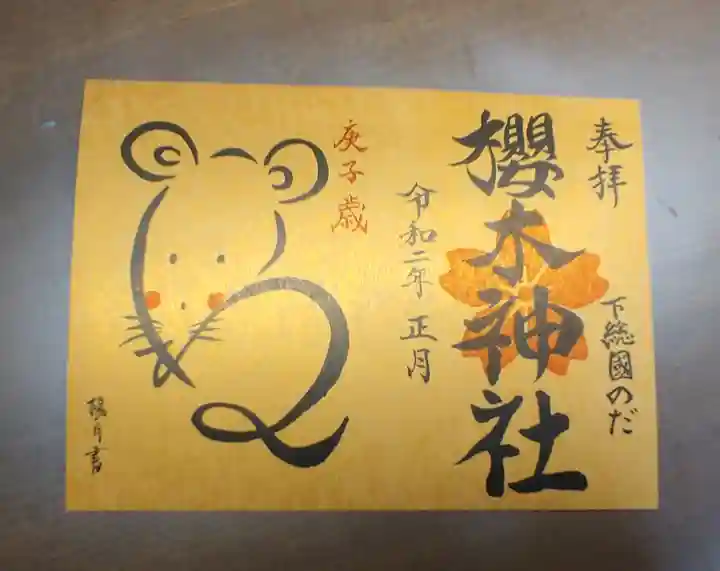 奉拝
下総國のだ
櫻木神社
令和二年 正月
庚子歳
書